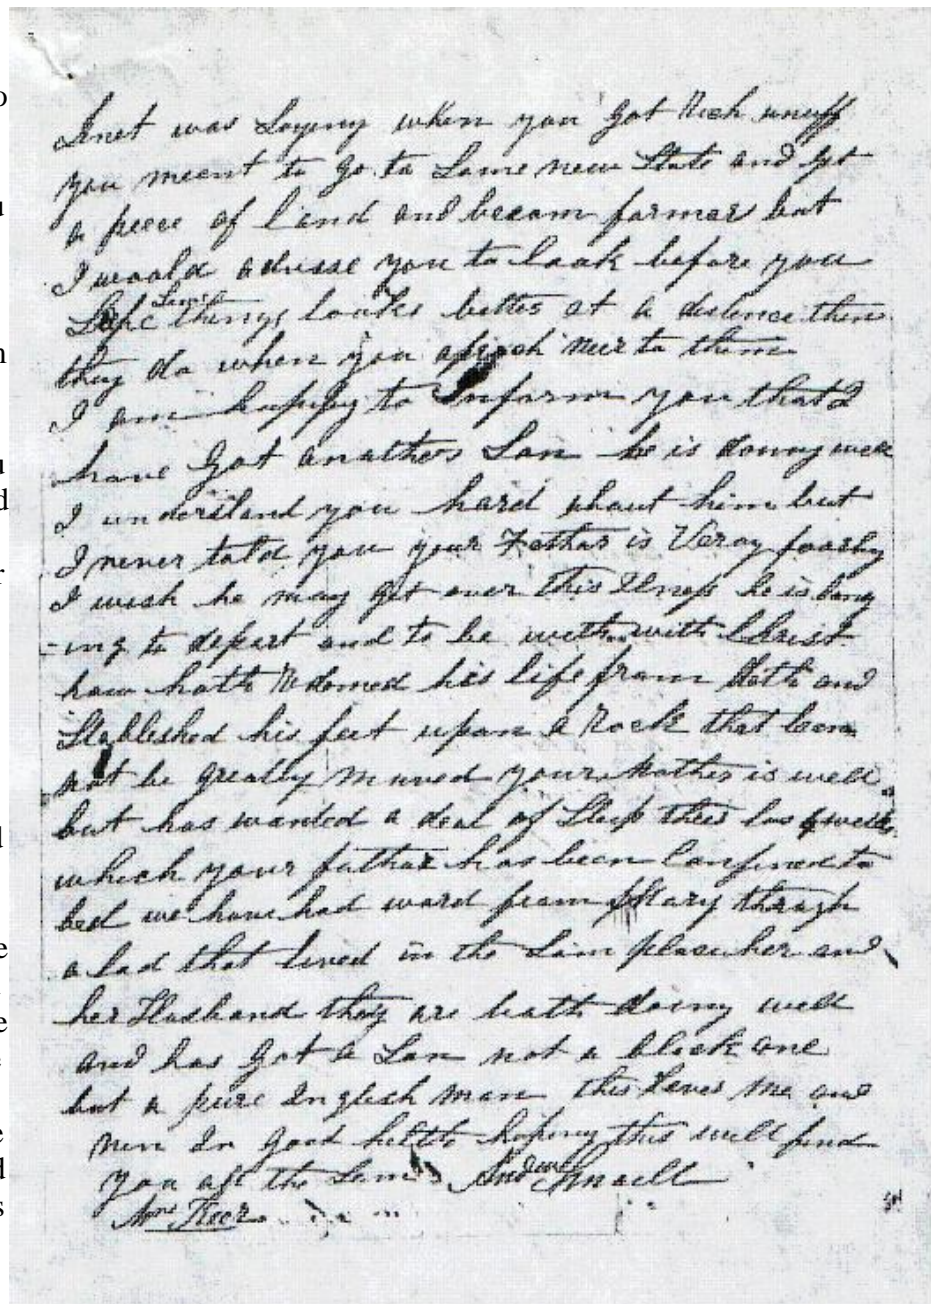 Jenet was Saying when you Got Rich unuff
you meant to go to Some new State and get
a peece of land and becom farmer but
I woold advise you to look before you
Leape Some things looks better at a distence then
they do when you aproch neer to them
I am happy to Inform you that I
have Got another Son he is doing well
I understand you hard about him but
I never told you your Fathar is Veray poorly
I wish he may get over this Ilness he is long
-ing to depart and to be with with Christ
how hath Redomed his life from deth and
Stableshed his feet upon a Rock that Can
not be greatly mooved your Mother is well
but has wanted a deal of Sleep thees las 4 weeks
which your fathar has been Confined to
bed we have had word from Mary through
a lad that lived in the Sam place her and
her Husband they are both doing well
and has Got a Son not a black one
but a pure Inglish man this leves me and
min In good helth hoping this will find
you all the Sem Andrew
Mrs Keer